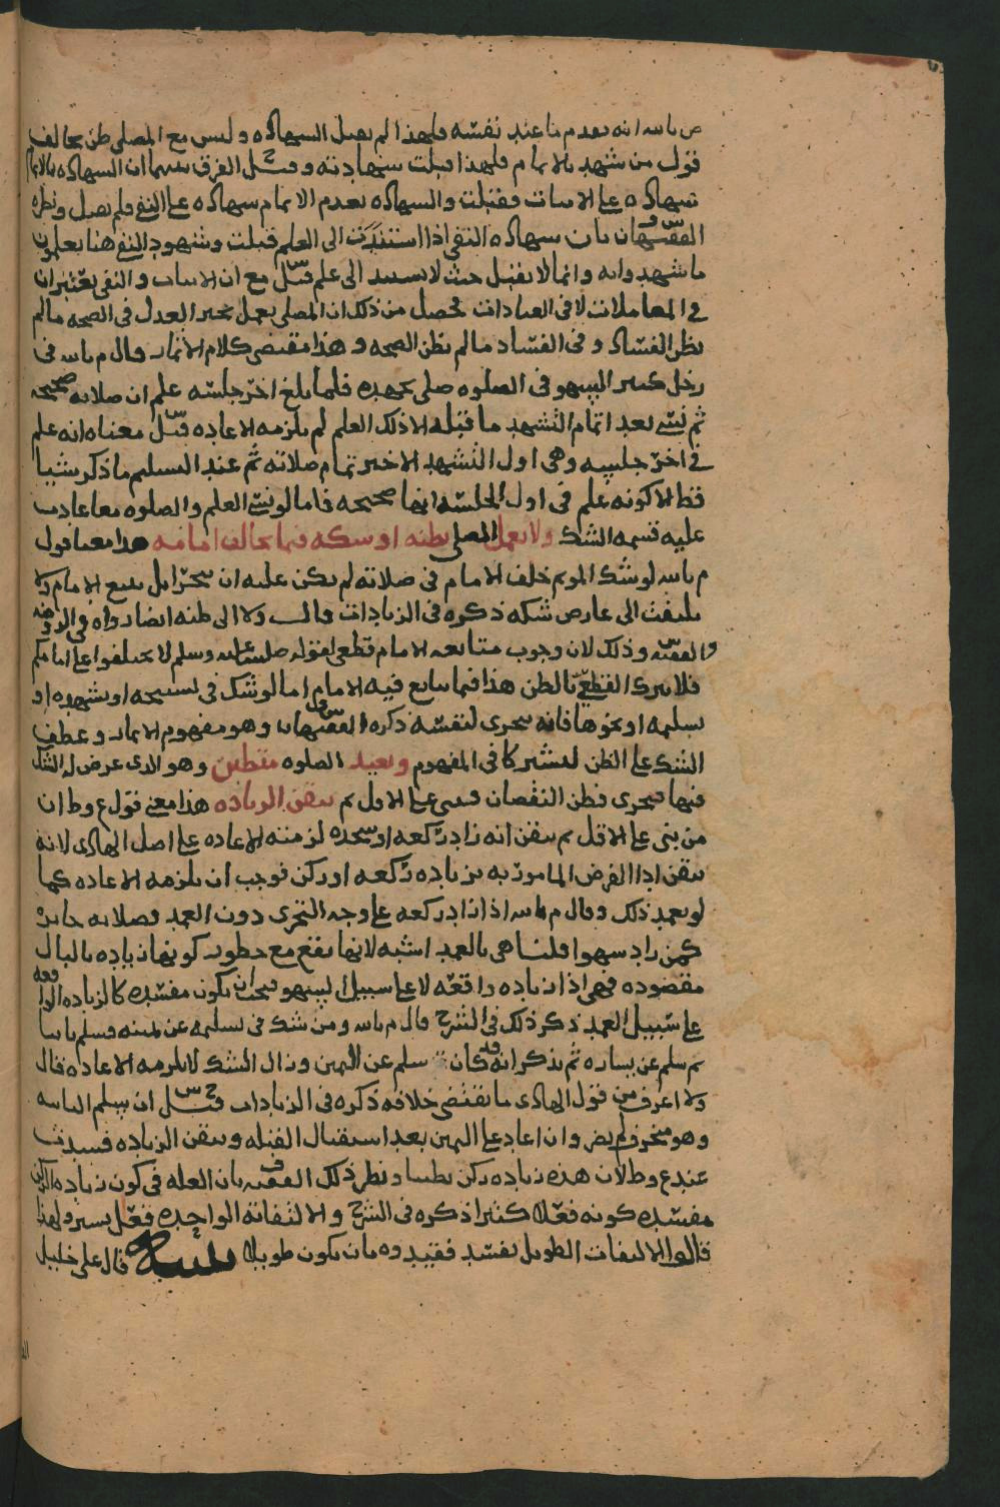 ص بالله انه يقدم ما عند نفسه فلهذا لم يقبل الشهاده وليس مع المصلي ظن يخالف
قول من شهد بالاتمام فلهذا قبلت شهادته وقيل الفرق بينهما ان الشهاده بالاتمام
شهاده على الاثبات فقبلت والشهاده بعدم الاتمام شهاده على النفي فلم يقبل ونظره
الفقيهان بان شهاده النفي اذا استندت الى العلم قبلت وشهود النفي هنا يعلمون
ما شهدوا به وانما لا يقبل حيث لا يستند الى علم قيل مع ان الاثبات والنفي يعتبران
في المعاملات لا في العبادات فحصل من ذلك ان المصلي يعمل بخبر العدل في الصحه ما لم
يظن الفساد وفي الفساد ما لم يظن الصحه وهذا مقتضى كلام الاثمار وقال م بالله في
رجل كثير السهو في الصلوه صلى بجهده فلما بلغ اخر جلسته علم ان صلاته صحيحه
ثم نسي بعد اتمام التشهد ما قبله الا ذلك العلم لم يلزمه الاعاده قيل معناه انه علم
في اخر جلسه وهي اول التشهد الاخير تمام صلاته ثم عند التسليم ما ذكر شيا
قط الا كونه علم في اول الجلسه انها صحيحه فاما لو نسي العلم والصلوه معا عادت
عليه قسمه الشك ولا يعمل المصلي بظنه او شكه فيما يخالف امامه هذا معنا قول
م بالله لو شك الموتم خلف الامام في صلاته لم يكن عليه ان يتحرا بل يتبع الامام ولا
يلتفت الى عارض شكه ذكره في الزيادات قال ولا الى ظنه ايضا رواه في الروضه
والفقيه وذلك لان وجوب متابعه الامام قطعي لقوله صلى الله عليه وسلم لا تختلفوا على امامكم
فلا يترك القطعي بالظن هذا فيما يتابع فيه الامام اما لو شك في تسبيحه او تشهده او
تسليمه او نحوها فانه يتحرى لنفسه ذكره الفقيهان وهو مفهوم الاثمار وعطف
الشك على الظن ليشتركا في المفهوم ويعيد الصلوه متظنن وهو الذي عرض له الشك
فيها فتحرى فظن النقصان فبنى على الاقل ثم تيقن الزياده هذا معنى قول ع وط ان
من بنى على الاقل ثم تيقن انه زاد ركعه او سجده لزمته الاعاده على اصل الهادي لانه
تيقن ادا الفرض المامور به بزياده ركعه او ركن فوجب ان يلزمه الاعاده كما
لو تعمد ذلك وقال م بالله اذا زاد ركعه على وجه التحري دون العمد فصلاته جايزه
كمن زاد سهوا قلنا هي بالعمد اشبه لانها تقع مع خطور كونها زياده بالبال
مقصوده فهي اذا زياده واقعه لا على سبيل السهو فيجب ان يكون مفسده كالزياده الواقعه
على سبيل العمد ذكر ذلك في الشرح قال م بالله ومن شك في تسليمه عن يمينه فسلم ثانيا
ثم سلم عن يساره ثم تذكر انه قد كان سلم عن اليمين وزال الشك لا يلزمه الاعاده قال
ولا اعرف من قول الهادي ما يقتضي خلافه ذكره في الزيادات قيل ان سلم الثانيه
وهو منحرف لم يضر وان اعاد على اليمين بعد استقبال القبله وتيقن الزياده فسدت
عند ع وط لان هذه زياده ركن بظننا ونظر ذلك الفقيه بان العله في كون زياده الركن
مفسده كونه فعلا كثيرا ذكره في الشرح والالتفاته الواحده فعل يسير ولهذا
قالوا الالتفات الطويل يفسد فقيدوه بان يكون طويلا تنبيه قال علي خليل